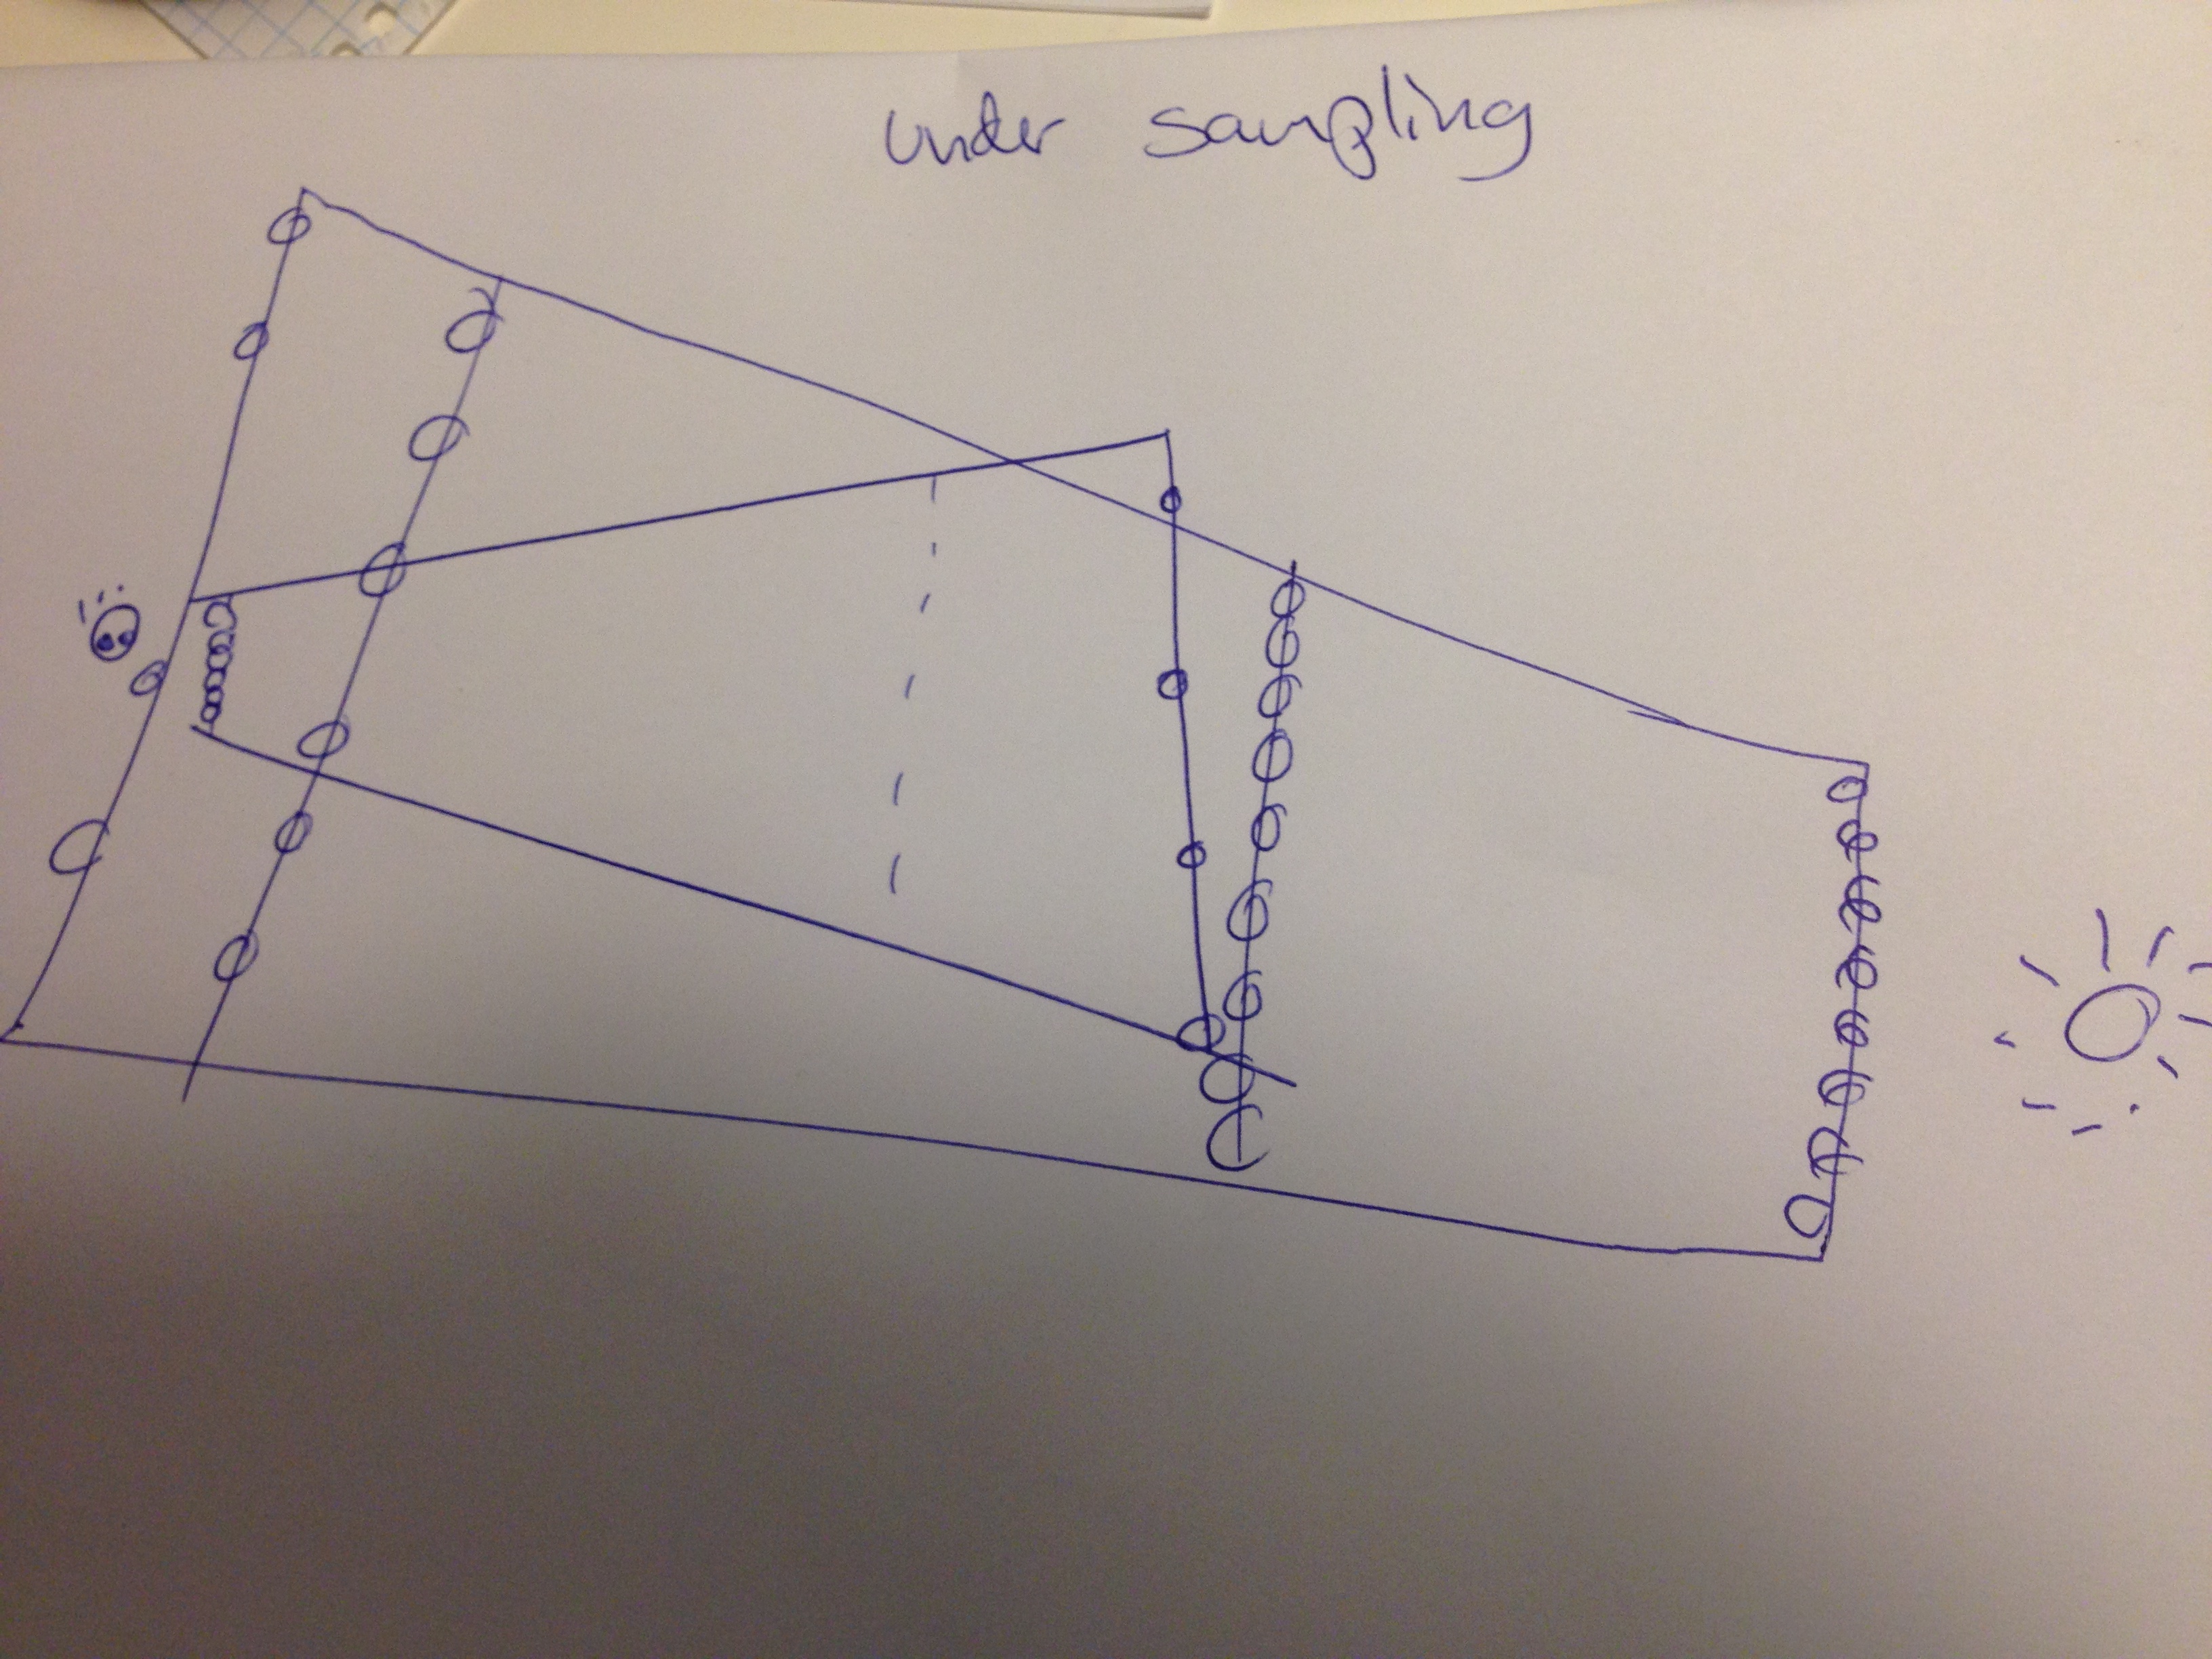 Under sampling